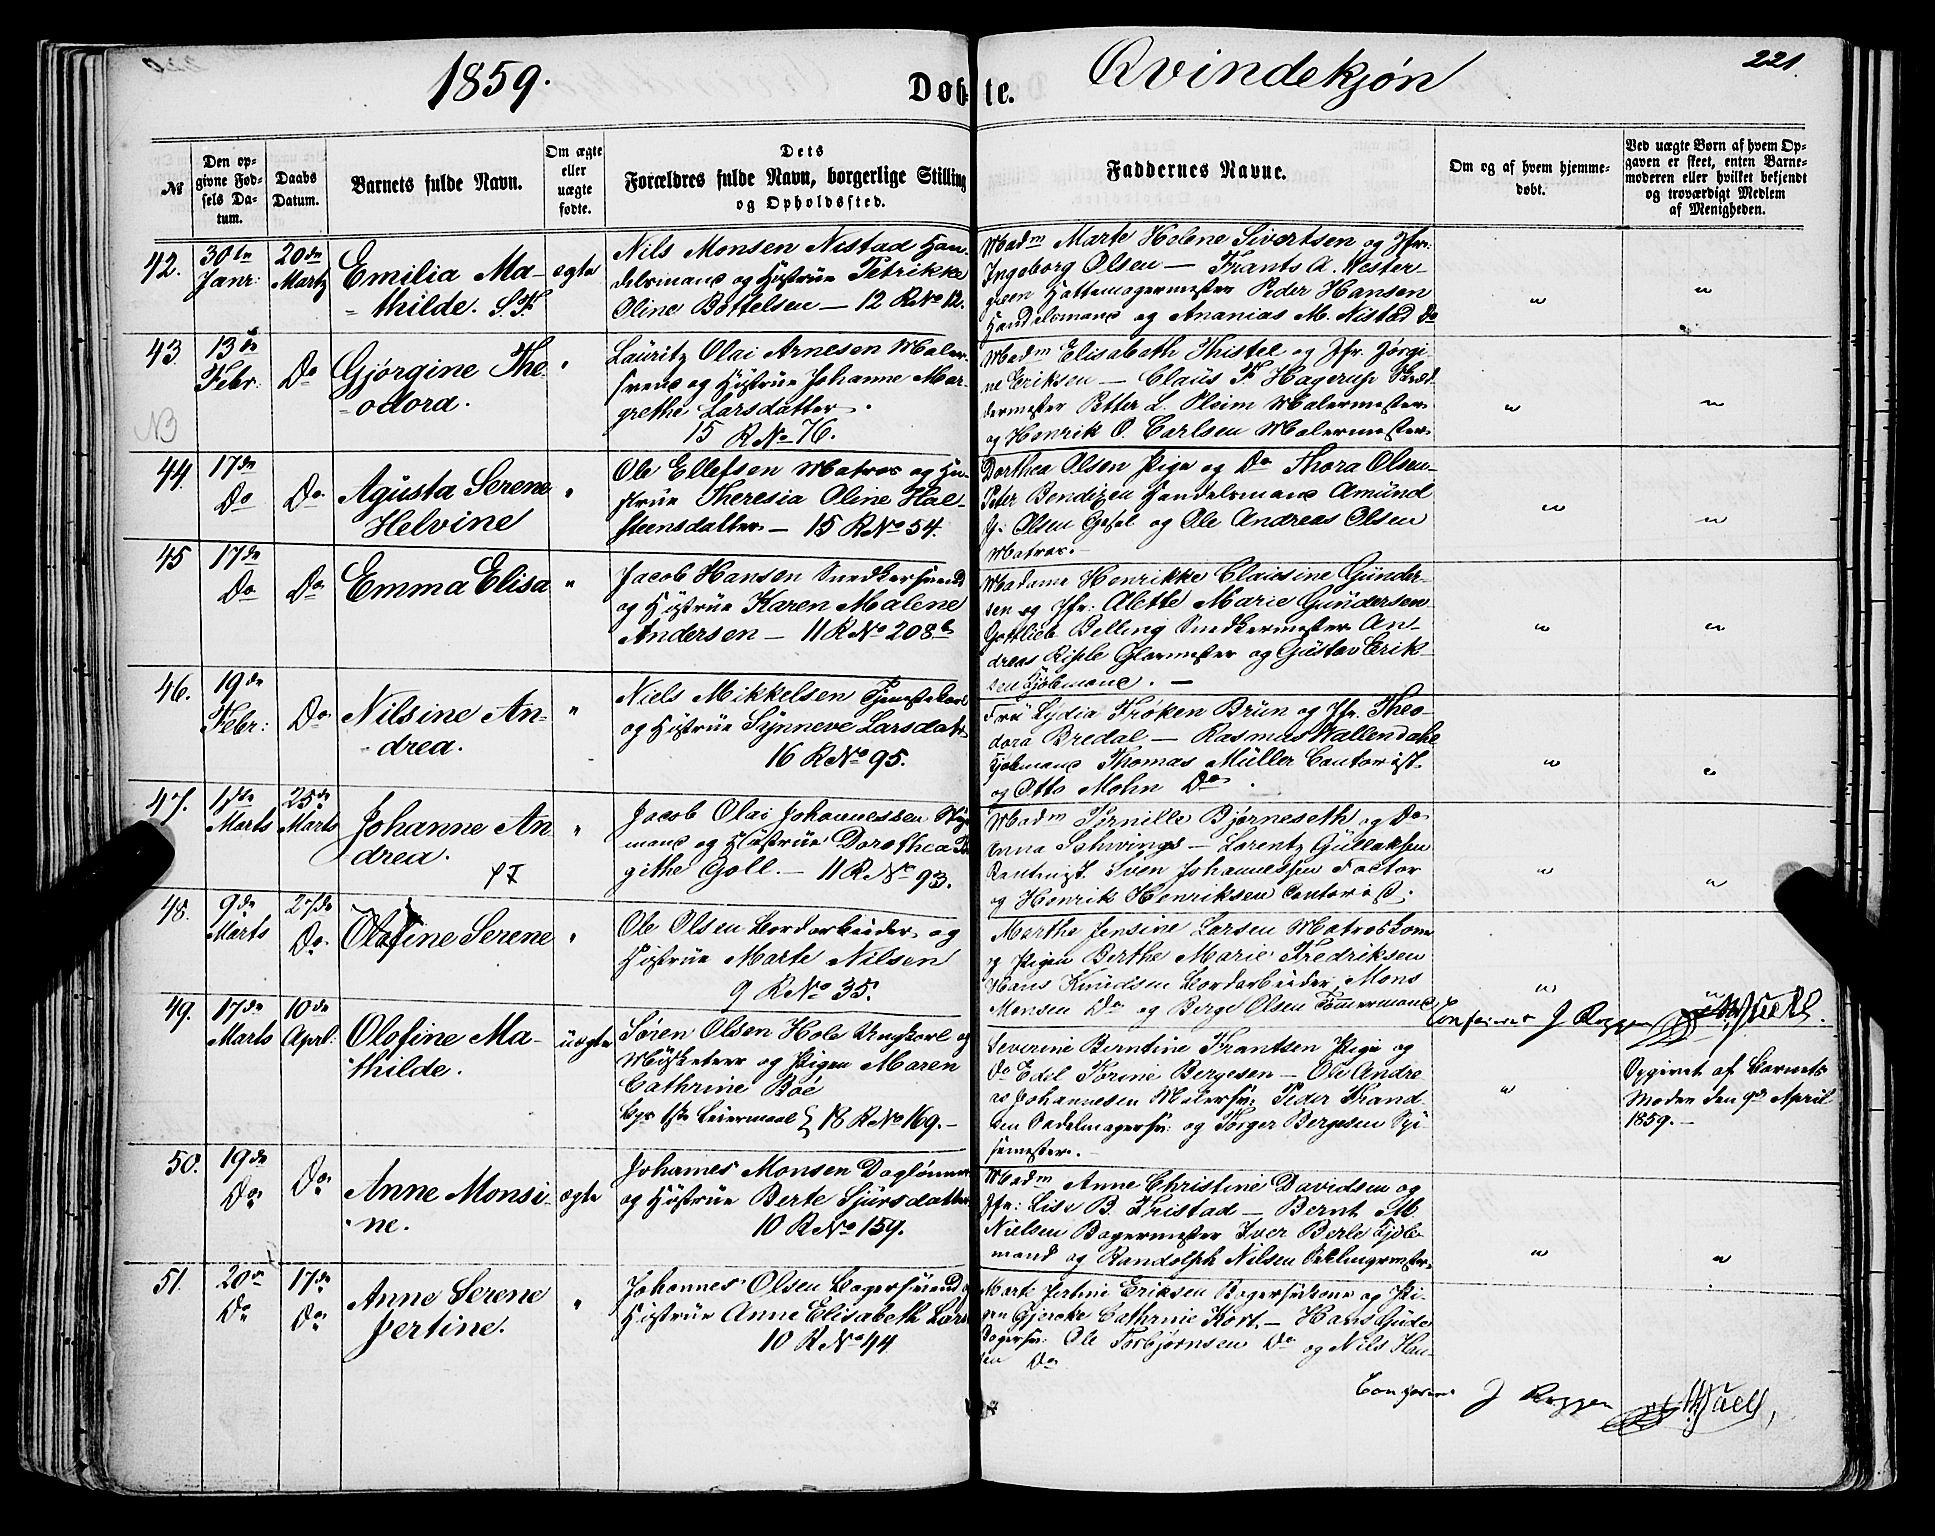 1859.
Døbte.
Qvindekjøn
221.
№
Den opgivne Fødsels Datum.
Daabs Datum.
Barnets fulde Navn.
Om ægte eller uægte fødte.
Dets Forældres fulde Navn, borgerlige Stilling og Opholdssted.
Faddernes Navne.
Om og af hvem hjemmedøbt.
Ved uægte Børn af hvem Opgaven er skeet, enten Barnemoderen eller hvilket bekjendt og troværdigt Medlem af Menigheden.
42. 30te Janr: 20de Martz
Emilia Ma-
thilde. S.F.
ægte
Nils Monsen Nistad Han-
delsmand og Hustrue Petrikke
Oline Bottelsen — 12 R No 12.
Madm Marte Helene Sivertsen og Jfr:
Ingeborg Olsen — Frants A. Wester-
green Hattemagermester Peder Hansen
Handelsmand og Ananias M. Nistad Do
43. 13de Febr. Do
Gjørgine The-
odora.
NB
Lauritz Olai Arnesen Maler-
svend og Hustrue Johanne Mar-
grethe Larsdatter.
15 R No 76.
Madm Elisabeth Thistel og Jfr. Jørgi-
ne Eriksen — Claus F. Hagerup
Petter L. Pleim Malermester
og Henrik O. Carlsen Malermester.
44. 17de Do Do
Agusta Serene
Helvine
Ole Ellefsen Matros og Hu-
strue Theresia Oline Hal-
steensdatter — 15 R No 54.
Dorthea Olsen Pige og Do Thora Olsen
Peter Bendixen Handelsmand Amund
G: Olsen Gesel og Ole Andreas Olsen
Matros.
45 17de Do Do
Emma Elisa
Jacob Hansen Snedkersvend
og Hustrue Karen Malene
Andersen — 11 R No 208b
Madame Henrikke Claisine Gunder-
sen og Jfr. Alette Marie Gundersen
Gottlieb Belling Snedkermester An-
dreas Glarmester og Gustav Erik-
sen Kjøbmand. —
46. 19de Febr: Do
Nilsine An-
drea.
Niels Mikkelsen Tjenestekarl
og Hustrue Synneve Larsdatr
16 R No 95.
Fru Lydia Frøken Brun og Jfr. Theo-
dora Bredal — Rasmus Wallendahl
Kjøbmand Thomas Müller Contorist
og Otto Mohn Do.
47. 17de Marts 25de Marts
Johanne An
drea.
Jacob Olai Johannessen
mand og Hustrue Dorothea Bir-
githe Goll. — 11 R No 93.
Madm Pernille Bjørneseth og Do
Anna Schwings — Lorentz Gullaksen
Sven Johannessen Factor
og Henrik Henriksen Contorist.
48. 9de Marts 27de Do
Olafine Serene
Ole Olsen Bordarbeider og
Hustrue Marte Nilsen
9 R No 35.
Marthe Jensine Larsen Matroskone
og Pigen Berthe Marie Fredriksen
Hans Knudsen Bordarbeider Mons
Monsen Do og Berge Olsen Tømermand
Confereret J Roggen
49. 17de Marts 10de Aprl:
Olofine Ma-
thilde.
uægte
Søren Olsen Hole Ungkarl og
Musketeer og Pigen Maren
Cathrine Boe
1ste Leiermaal } 18 R No 169. —
Severine Berntine Frantsen Pige og
Do Edel Torine Bergesen — Ole Andre-
as Johannesen Malersv: Peder Krand-
sen Sadelmagersv: og Torger Bergesen Spi-
semester. —
Opgivet af Barnets
Moder den 9de April
1859. —
50. 19de Do. Do.
Anne Monsi-
ne.
ægte
Johannes Monsen Dagløner
og Hustrue Berte Sjursdatter
10 R No 159.
Madm Anne Christine Davidsen og
Jfr: Lise B. Tristad — Bernt M
Nielsen Bagermester Iver Berle Kjøb-
mand og Randolph Nilsen
51. 20de Do 17de Do.
Anne Serene
Jertine.
Johannes Olsen Bagersvend og
Hustrue Anne Elisabeth Lars
10 R No 44
Marte Jertine Eriksen Bagersvkone og Pi-
gen Gjerche Cathrine Kort. — Hans Gude
Bagersv: Ole Torbjørnsen Do og Nils Han-
sen Do
Confereret J Roggen